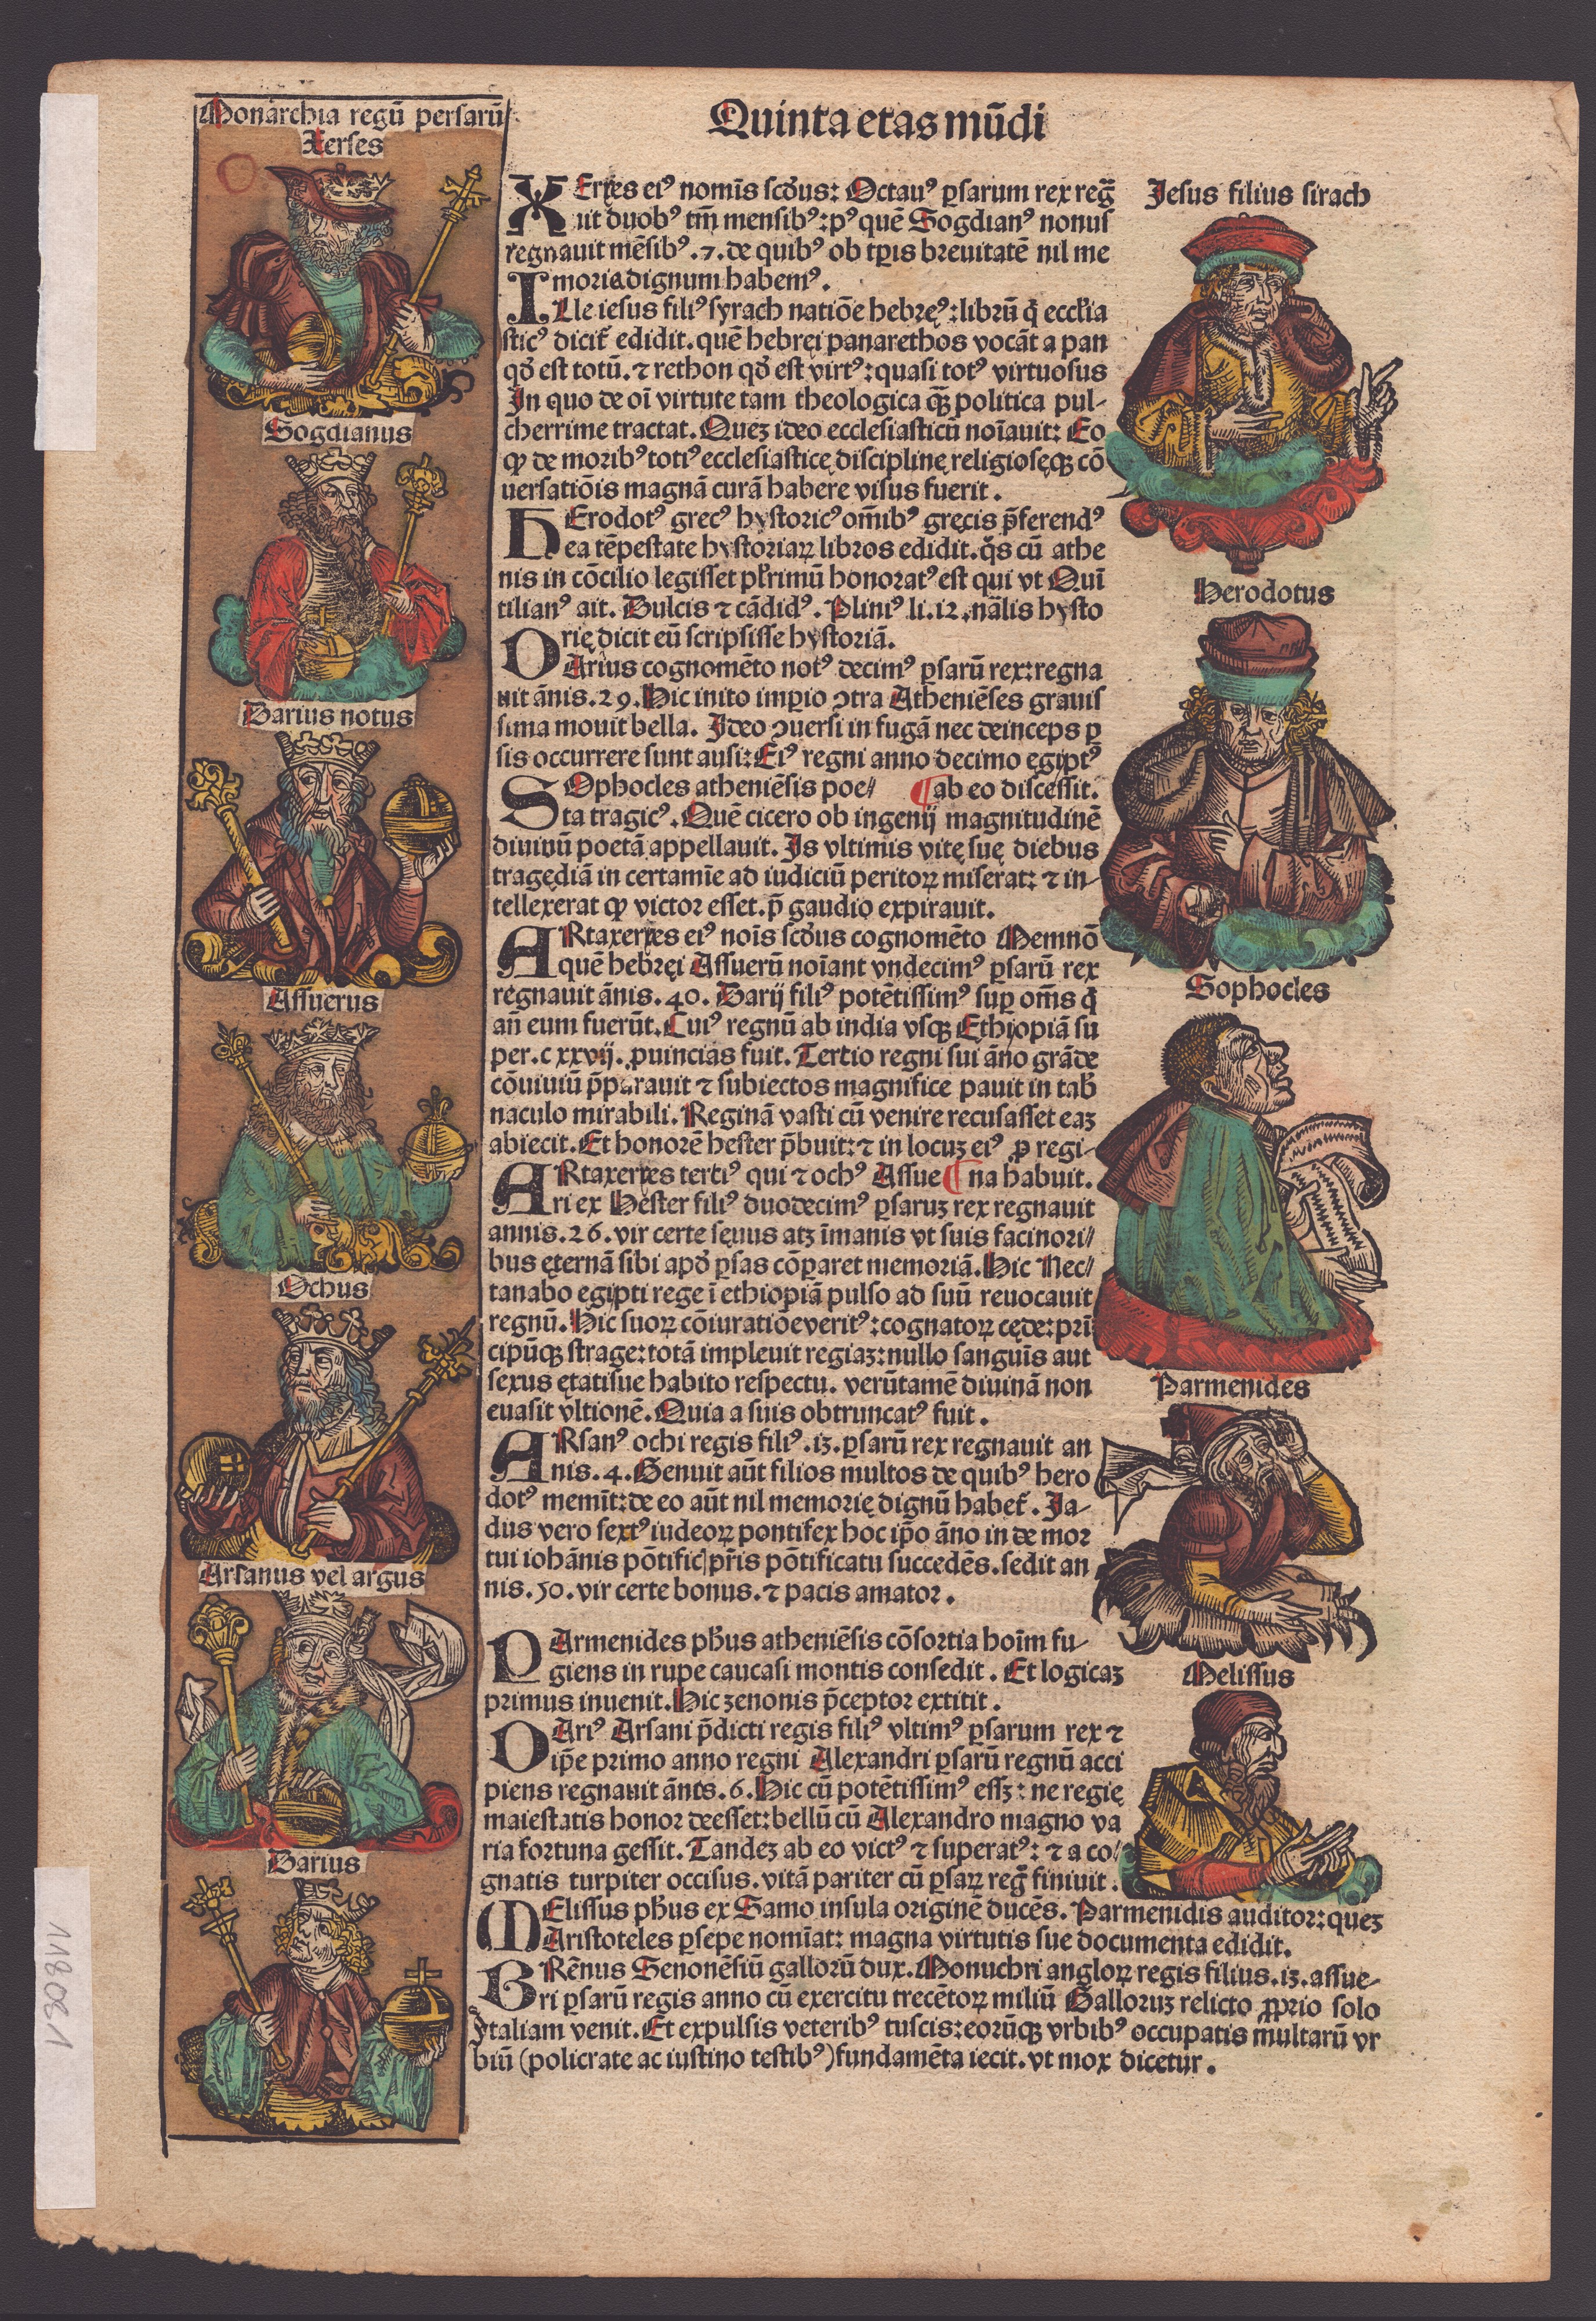 Quinta etas mūdi
Monarchia regū persarū
Xerses
Sogdianus
Darius notus
Assuerus
Ochus
Arsanus vel argus
Darius
XErxes eiꝰ nomīs scd̓us: Octauꝰ ꝑsarum rex reg̃
uit duobꝰ tm̄ mensibꝰ: pꝰ quē Sogdianꝰ nonus
regnauit mēsibꝰ .7. de quibꝰ ob tꝑis breuitatē nil me
moria dignum habemꝰ.
ILle iesus filiꝰ syrach natiōe hebręꝰ: librū q̇ eccl̓ia
sticꝰ dicit̃ edidit. quē hebręi panarethos vocāt a pan
qd̓ est totū. ⁊ rethon qd̓ est virtꝰ: quasi totꝰ virtuosus
In quo de oī virtute tam theologica qꝫ̃ politica pul-
cherrime tractat. Quez ideo ecclesiasticū noīauit: Eo
ꝙ de moribꝰ totiꝰ ecclesiasticę disciplinę religiosęqꝫ cō
uersatiōis magnā curā habere visus fuerit.
HErodotꝰ grecꝰ hystoricꝰ om̄ibꝰ gręcis p̄ferendꝰ
ea tēpestate hystoriaꝝ libros edidit. q̊s cū athe
nis in cōcilio legisset pl̓rimū honoratꝰ est qui vt Quī
tilianꝰ ait. Dulcis ⁊ cādidꝰ. Pliniꝰ li. 12. nālis hysto
rię dicit eū scripsisse hystoriā.
DArius cognomēto notꝰ decimꝰ ꝑsarū rex: regna
uit ānis. 29. Hic inito imꝑio ꝯtra Atheniēses grauis
sima mouit bella. Ideo ꝯuersi in fugā nec deinceps ꝑ
sis occurrere sunt ausi: Eiꝰ regni anno decimo egiptꝰ
¶ ab eo discessit.
SOphocles atheniēsis poe//
ta tragicꝰ. Quē cicero ob ingenij magnitudinē
diuinū poetā appellauit. Is vltimis vitę suę diebus
tragędiā in certamīe ad iudiciū peritoꝝ miserat: ⁊ in-
tellexerat ꝙ victor esset. p̄ gaudio expirauit.
ARtaxerxes eiꝰ noīs scd̓us cognomēto Memnō
quē hebręi Assuerū noīant vndecimꝰ ꝑsarū rex
regnauit ānis. 40. Darij filiꝰ potētissimꝰ suꝑ om̄s q̇
añ eum fuerūt. Cuiꝰ regnū ab india vsqꝫ Ethyopiā su
per. cxxvij. ꝓuincias fuit. Tertio regni sui āno grāde
cōuiuiū p̄parauit ⁊ subiectos magnifice pauit in tab̓
naculo mirabili. Reginā vasti cū venire recusasset eaz
abiecit. Et honorē hester p̄buit: ⁊ in locuz eiꝰ ꝓ regi-
¶ na habuit.
ARtaxerxes tertiꝰ qui ⁊ ochꝰ Assue
ri ex Hester filiꝰ duodecimꝰ ꝑsaruz rex regnauit
annis. 26. vir certe sęuus atꝫ īmanis vt suis facinori//
bus ęternā sibi apd̓ ꝑsas cōꝑaret memoriā. Hic Nec//
tanabo egipti rege ī ethiopiā pulso ad suū reuocauit
regnū. Hic suoꝝ cōiuratiōe veritꝰ: cognatoꝝ cęde: prī
cipūqꝫ strage: totā impleuit regiaz: nullo sanguīs aut
sexus ętatisue habito respectu. verūtamē diuinā non
euasit vltionē. Quia a suis obtruncatꝰ fuit.
ARsanꝰ ochi regis filiꝰ. 13. ꝑsarū rex regnauit an
nis. 4. Genuit aūt filios multos de quibꝰ hero
dotꝰ memīt: de eo aūt nil memorię dignū habet̃. Ja-
dus vero sextꝰ iudeoꝝ pontifex hoc ip̄o āno in de mor
tui iohānis pōtificꝭ p̄ris pōtificatu succedēs. sedit an
nis. 50. vir certe bonus. ⁊ pacis amator.
PArmenides ph̓us atheniēsis cōsortia hoīm fu-
giens in rupe caucasi montis consedit. Et logicaz
primus inuenit. Hic zenonis p̄ceptor extitit.
DAriꝰ Arsani p̄dicti regis filiꝰ vltimꝰ ꝑsarum rex ⁊
ip̄e primo anno regni Alexandri ꝑsarū regnū acci
piens regnauit ānis. 6. Hic cū potētissimꝰ essꝫ: ne regię
maiestatis honor deesset: bellū cū Alexandro magno va
ria fortuna gessit. Tandez ab eo victꝰ ⁊ superatꝰ: ⁊ a co//
gnatis turpiter occisus. vitā pariter cū ꝑsaꝝ reg̃ finiuit.
MElissus ph̓us ex Samo insula originē ducēs. Parmenidis auditor: quez
Aristoteles ꝑsepe nomīat: magna virtutis sue documenta edidit.
BRēnus Senonēsiū gallorū dux. Monuchri angloꝝ regis filius. 13. assue-
ri ꝑsarū regis anno cū exercitu trecētoꝝ miliū Galloruz relicto ꝓprio solo
Italiam venit. Et expulsis veteribꝰ tuscis: eorūqꝫ vrbibꝰ occupatis multarū vr
biū (policrate ac iustino testibꝰ) fundamēta iecit. vt mox dicetur.
Jesus filius sirach
Herodotus
Sophocles
Parmenides
Melissus
1180811